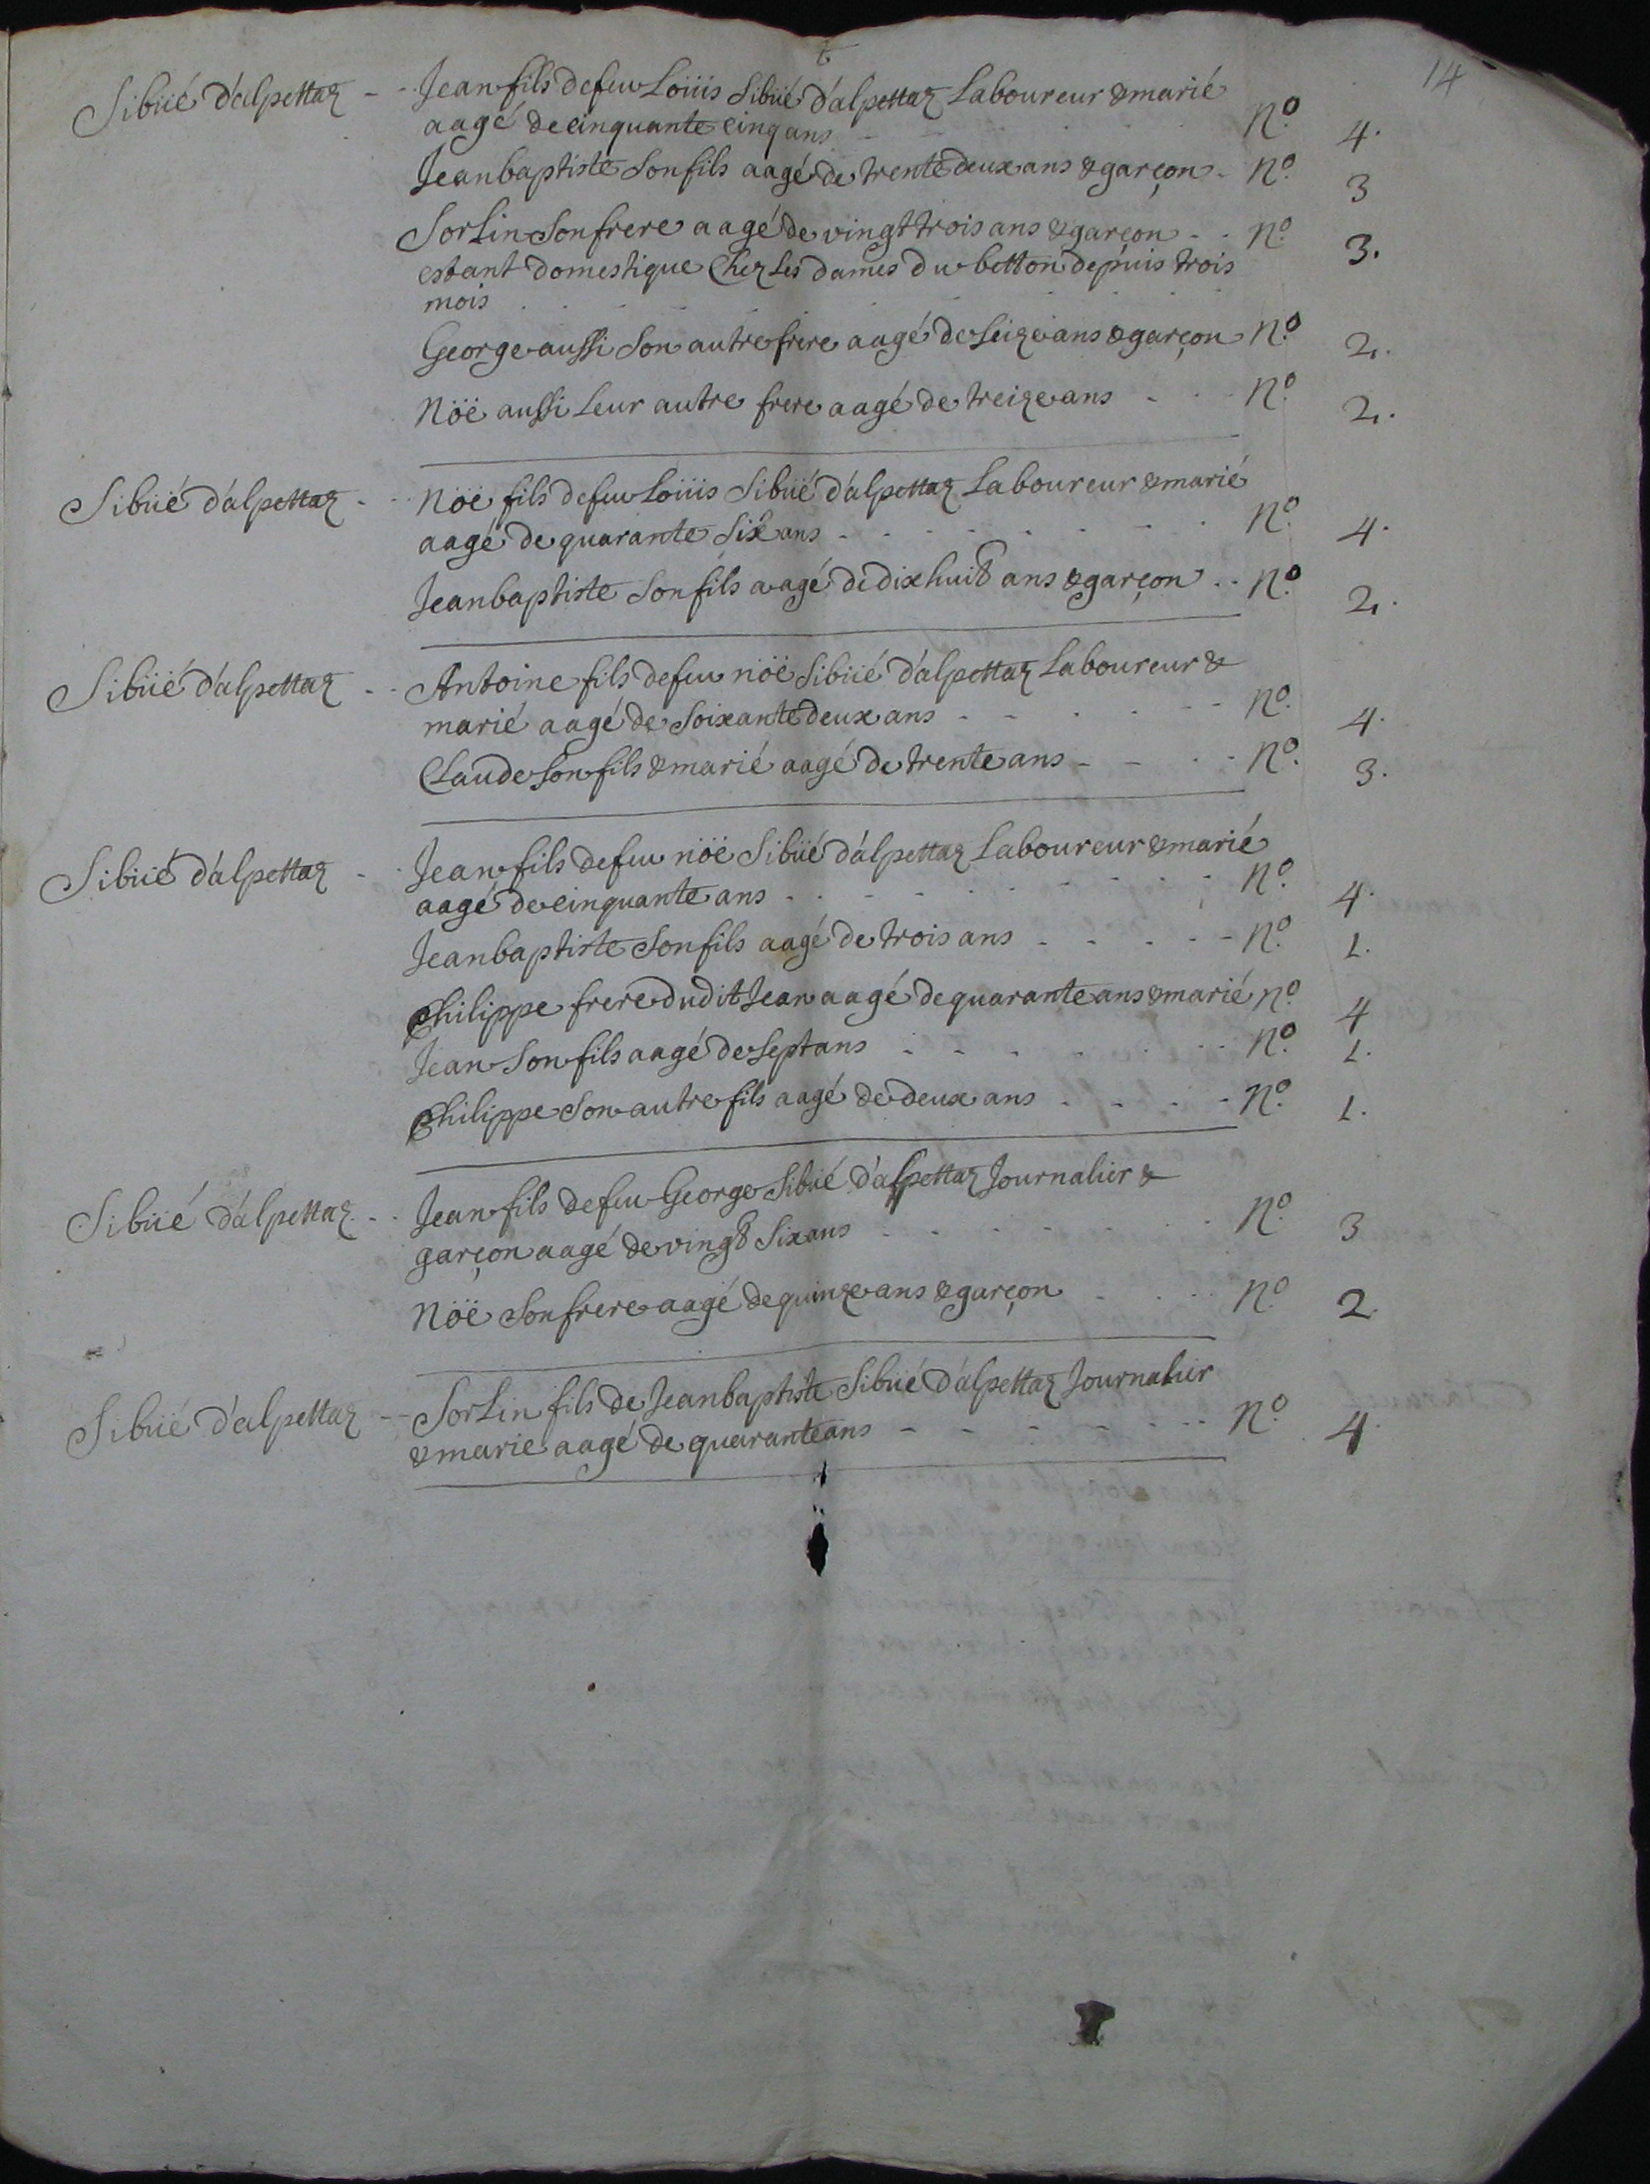 14
Sibüé d'alpettaz - - Jean fils de feu Loüis Sibüé d'alpettaz Laboureur & marié
aagé de cinquante cinq ans Nº. 4.
Jeanbaptiste son fils aagé de trente deux ans & garçon - Nº. 3
Sorlin son frere aagé de vingt trois ans & garçon - - Nº. 3.
estant domestique chez les dames du betton depuis trois
mois
George aussi son autre frere aagé de seize ans & garçon Nº. 2.
Nöé aussi leur autre frere aagé de treize ans - - Nº. 2.
Sibüé d'alpettaz - - Nöé fils de feu Loüis Sibüé d'alpettaz Laboureur & marié
aagé de quarante six ans - - - - Nº. 4.
Jeanbaptiste son fils aagé de dix huit ans & garçon - - Nº. 2.
Sibüé d'alpettaz - - Antoine fils de feu nöé Sibüé d'alpettaz Laboureur &
marié aagé de soixante deux ans - - - - Nº. 4.
Claude son fils & marié aagé de trente ans - - - - Nº. 3.
Sibüé d'alpettaz - - Jean fils de feu nöé Sibüé d'alpettaz Laboureur & marié
aagé de cinquante ans - - - - Nº. 4.
Jeanbaptiste son fils aagé de trois ans - - - - Nº. 1.
Philippe frere dudit Jean aagé de quarante ans & marié Nº. 4
Jean son fils aagé de sept ans - - - - Nº. 1.
Philippe son autre fils aagé de deux ans - - - - Nº. 1.
Sibüé d'alpettaz - - Jean fils de feu George Sibüé d'alpettaz Journalier &
garçon aagé de vingt six ans - - - - Nº. 3
Nöé son frere aagé de quinze ans & garçon - - - Nº. 2
Sibüé d'alpettaz - - Sorlin fils de Jeanbaptiste Sibüé d'alpettaz Journalier
& marié aagé de quarante ans - - - - Nº. 4.